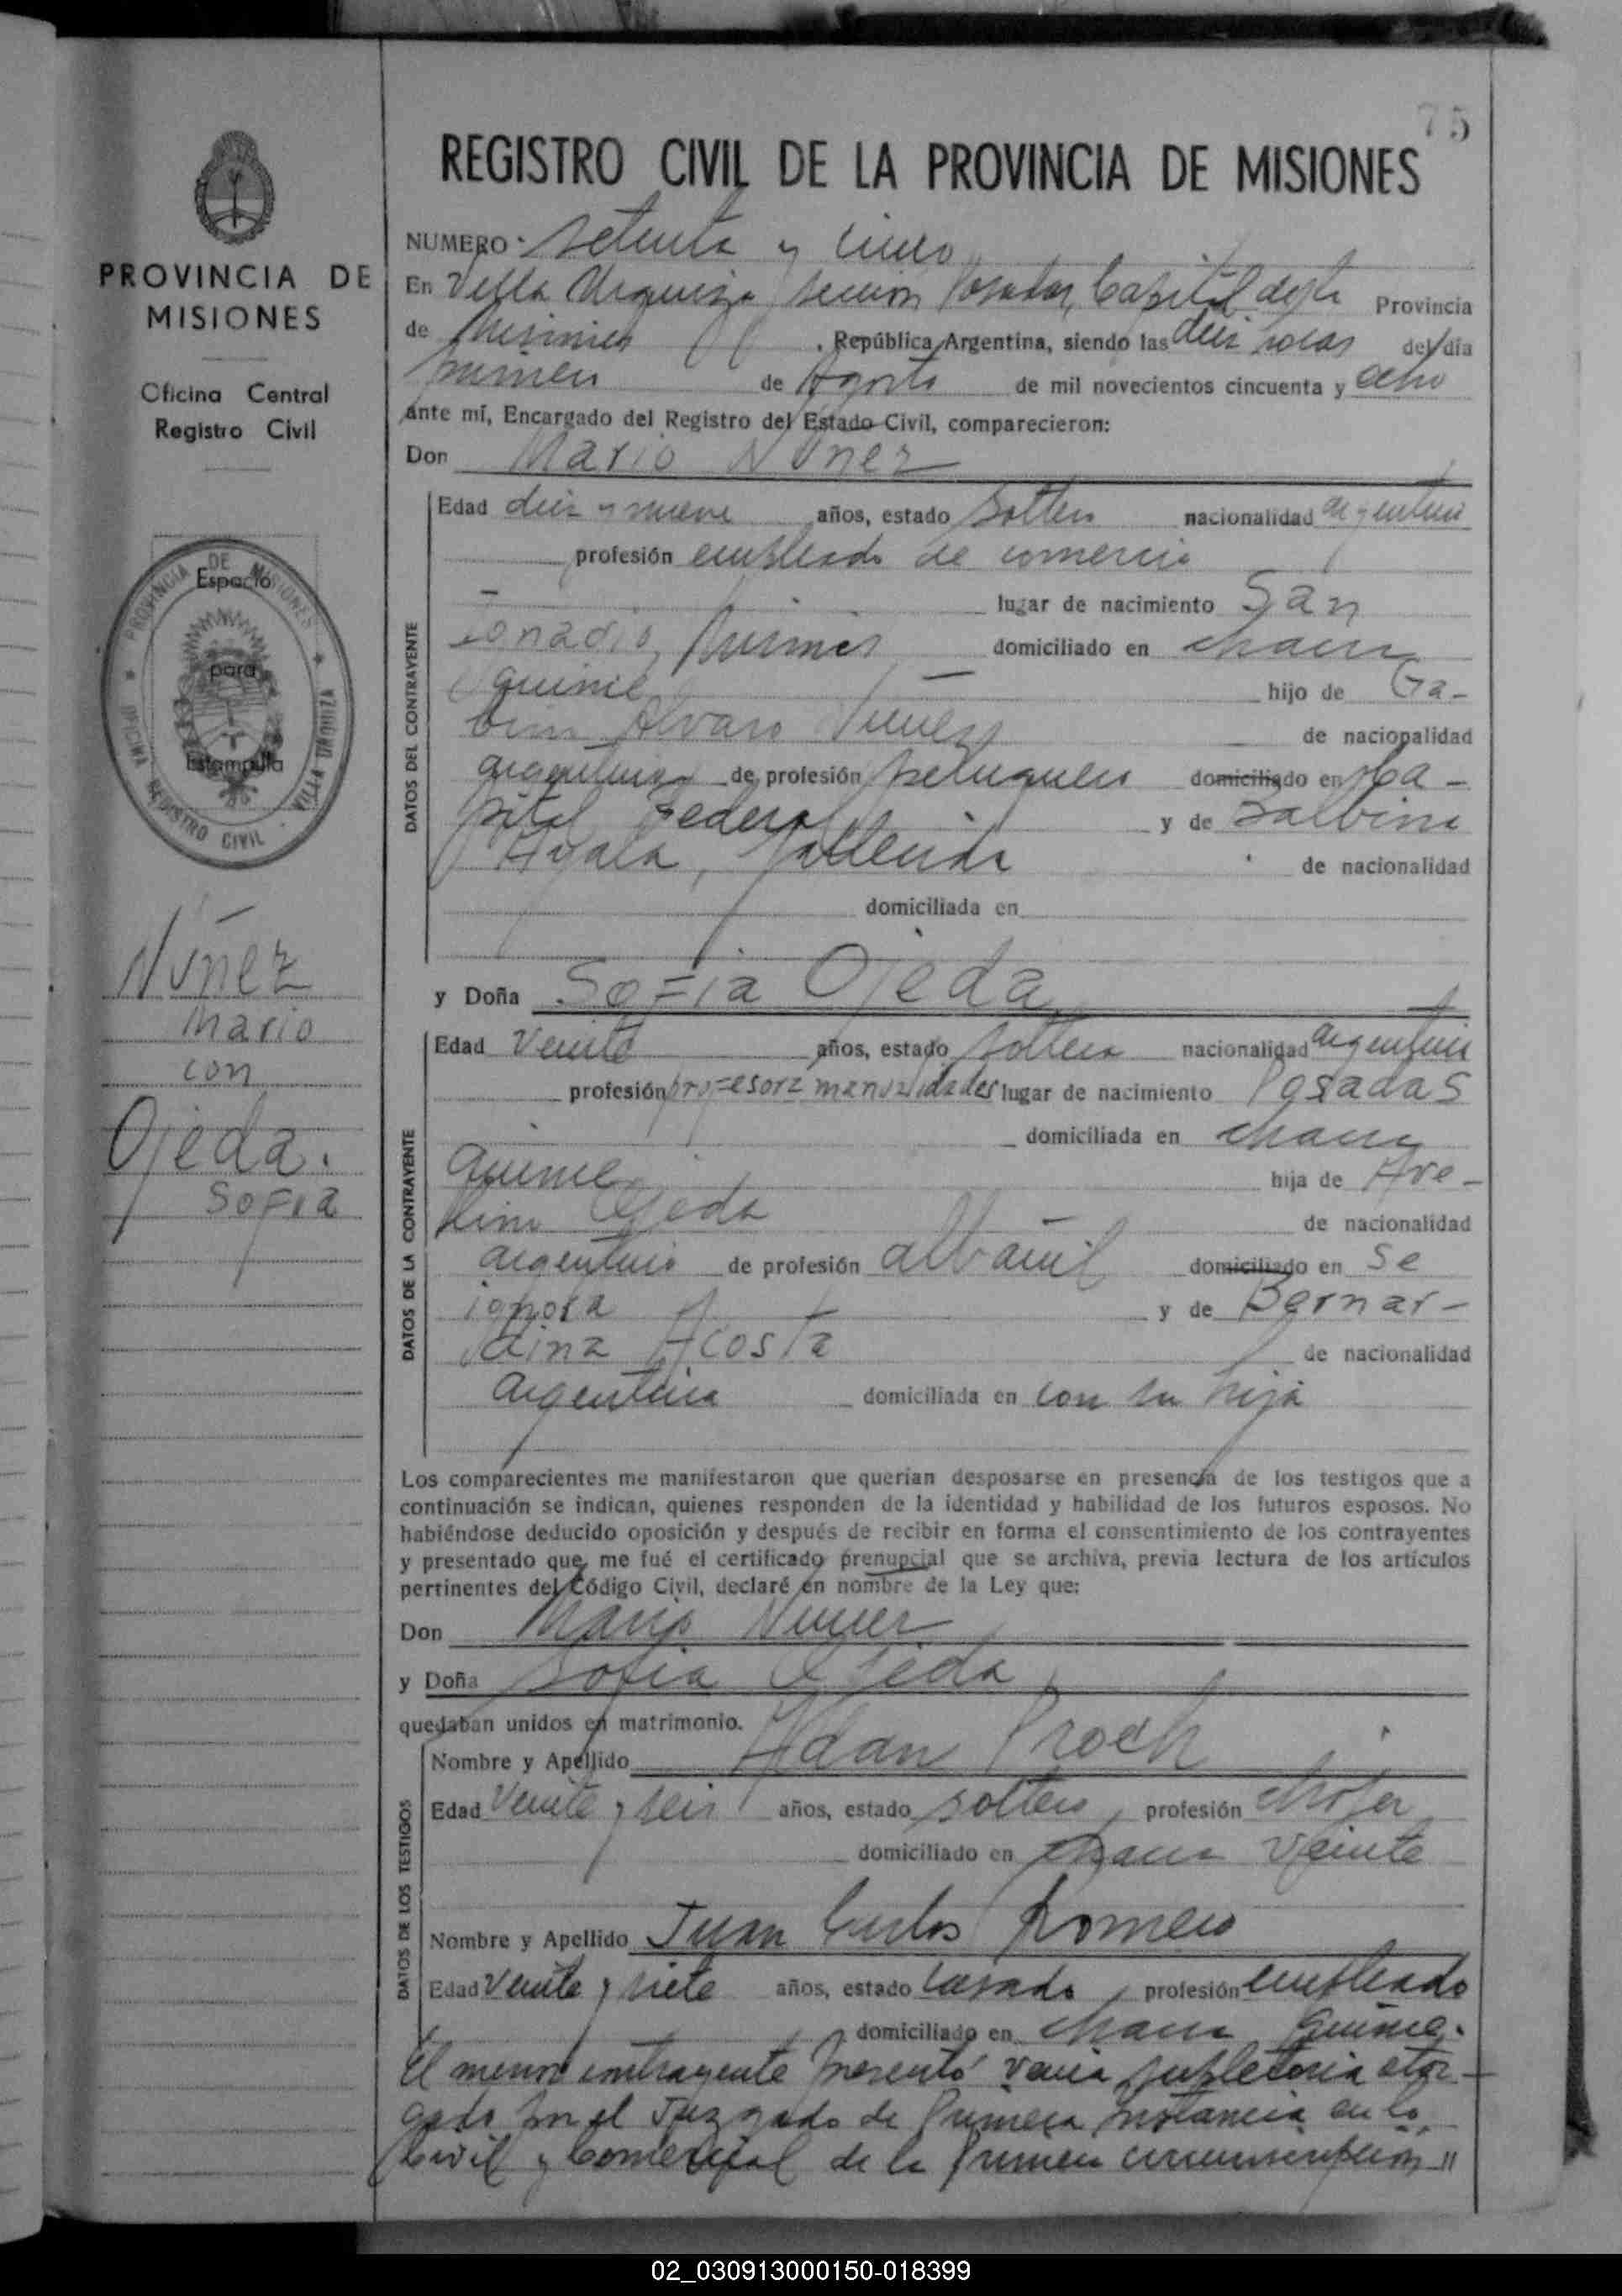 75
REGISTRO CIVIL DE LA PROVINCIA DE MISIONES
PROVINCIA DE
MISIONES
Oficina Central
Registro Civil
PROVINCIA DE MISIONES
Espacio
para
Estampilla
OFICINA REGISTRO CIVIL - VILLA URQUIZA
Núñez
Mario
con
Ojeda.
Sofia
NUMERO setenta y cinco
En Villa Urquiza, sección Posadas, Capital de la Provincia
de Misiones . República Argentina, siendo las diez horas del día
primero de Agosto de mil novecientos cincuenta y ocho
ante mí, Encargado del Registro del Estado Civil, comparecieron:
Don Mario Núñez
DATOS DEL CONTRAYENTE
Edad diez y nueve años, estado soltero nacionalidad argentino
profesión empleado de comercio
lugar de nacimiento San
Ignacio, Misiones domiciliado en chacra
quince hijo de Ga-
bino Alvaro Nuñez de nacionalidad
argentino de profesión peluquero domiciliado en Ca-
pital Federal y de Balbina
Ayala, fallecida de nacionalidad
domiciliada en
y Doña Sofia Ojeda
DATOS DE LA CONTRAYENTE
Edad Veinte años, estado soltera nacionalidad argentina
profesión profesora manualidades lugar de nacimiento Posadas
domiciliada en chacra
quince hija de Ave-
lino Ojeda de nacionalidad
argentino de profesión albañil domiciliado en se
ignora y de Bernar-
dina Acosta de nacionalidad
argentina domiciliada en con su hija
Los comparecientes me manifestaron que querían desposarse en presencia de los testigos que a
continuación se indican, quienes responden de la identidad y habilidad de los futuros esposos. No
habiéndose deducido oposición y después de recibir en forma el consentimiento de los contrayentes
y presentado que me fué el certificado prenupcial que se archiva, previa lectura de los artículos
pertinentes del Código Civil, declaré en nombre de la Ley que:
Don Mario Nuñez
y Doña Sofia Ojeda
quedaban unidos en matrimonio.
DATOS DE LOS TESTIGOS
Nombre y Apellido Adan Proch
Edad Veinte y seis años, estado soltero, profesión chofer
domiciliado en chacra veinte
Nombre y Apellido Juan Carlos Romero
Edad Veinte y siete años, estado casado, profesión empleado
domiciliado en chacra quince.
El menor contrayente presentó venia supletoria otor-
gada por el Juzgado de Primera Instancia en lo
Civil y Comercial de la Primera circunscripción //
02_030913000150-018399